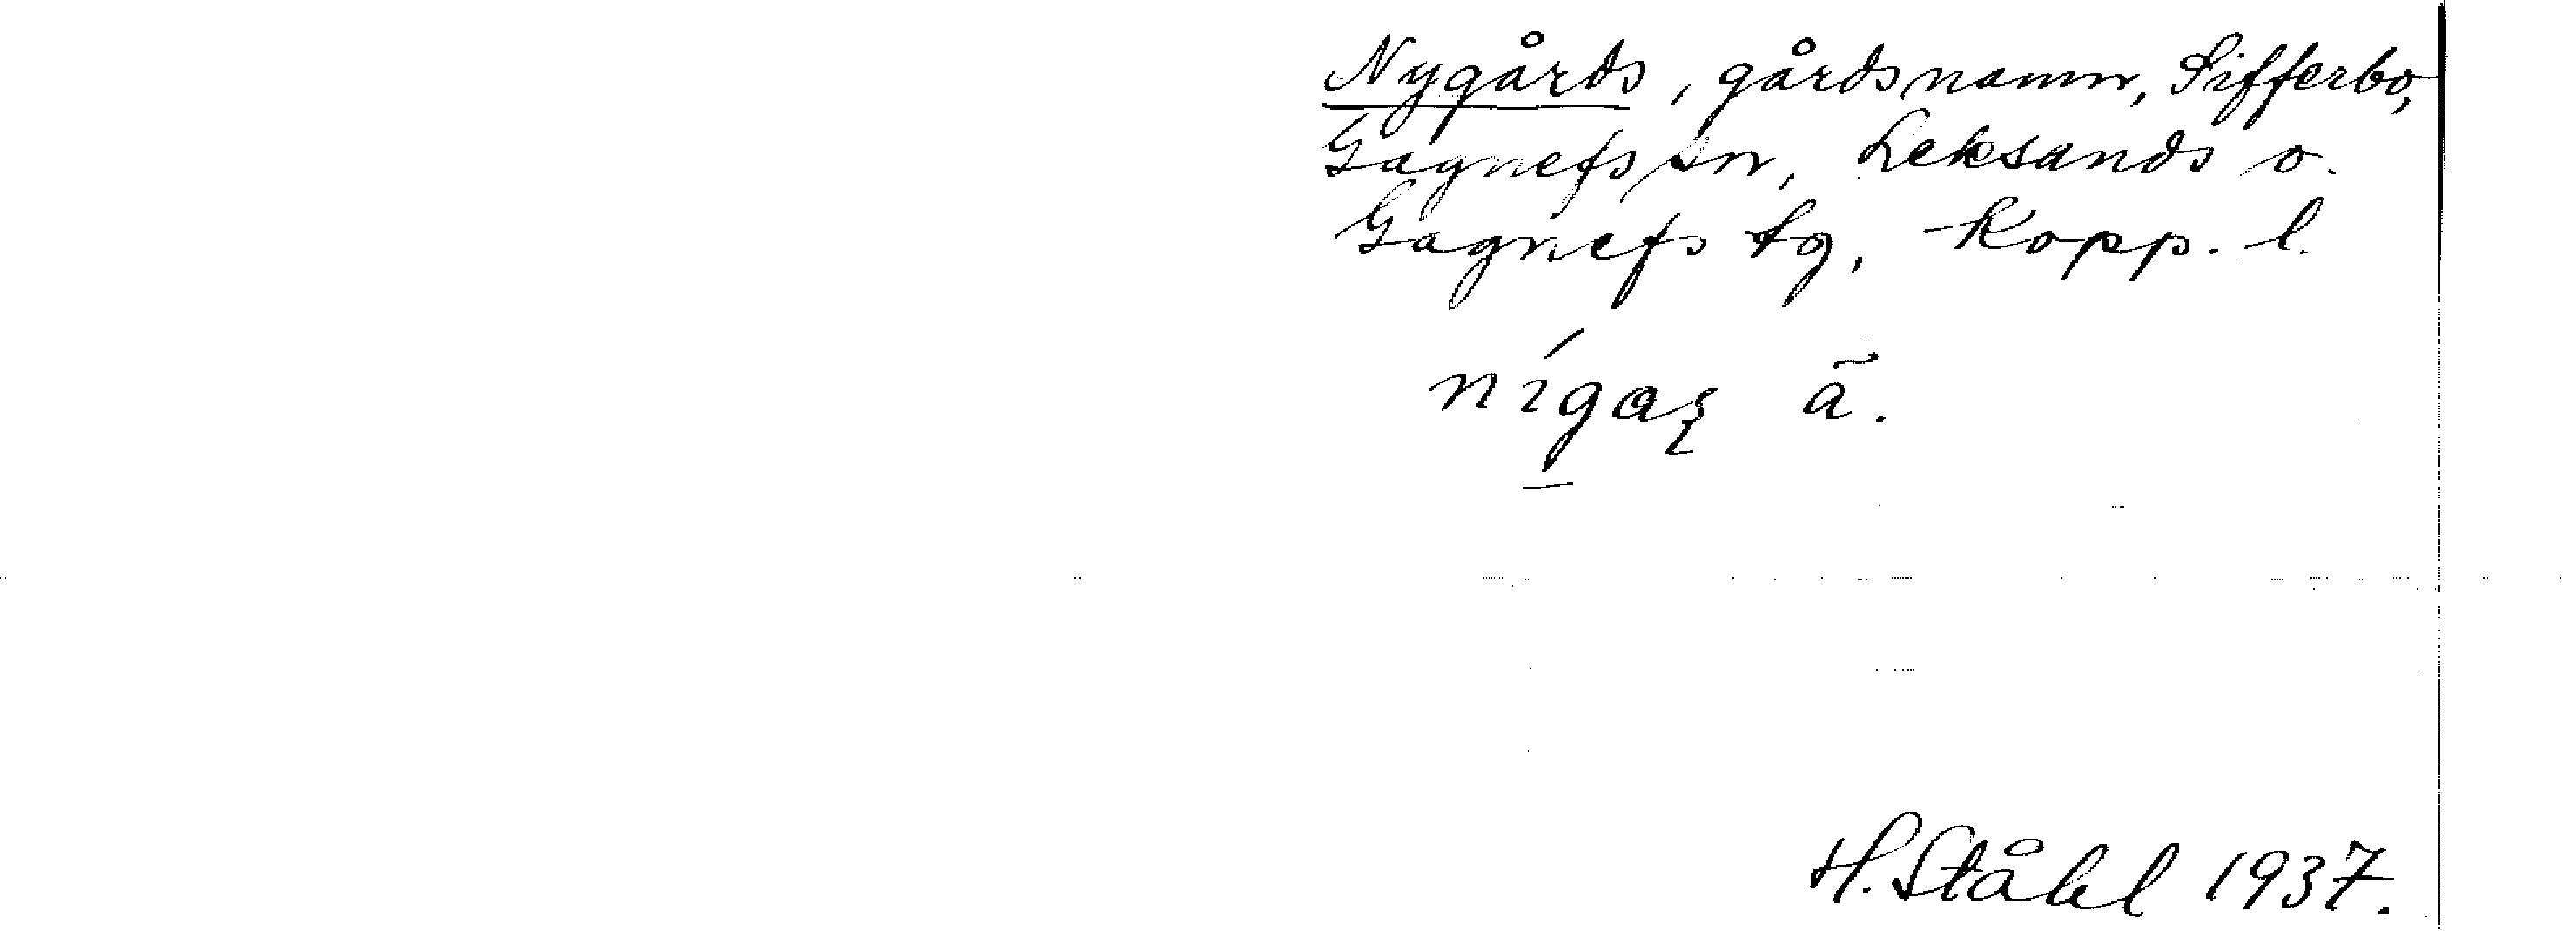 Nygårds, gårdsnamn, Sifferbo,
Gagnefs sn, Leksands o.
Gagnefs tg, Kopp. l.
nígaʂ ã.
H. Ståhl 1937.